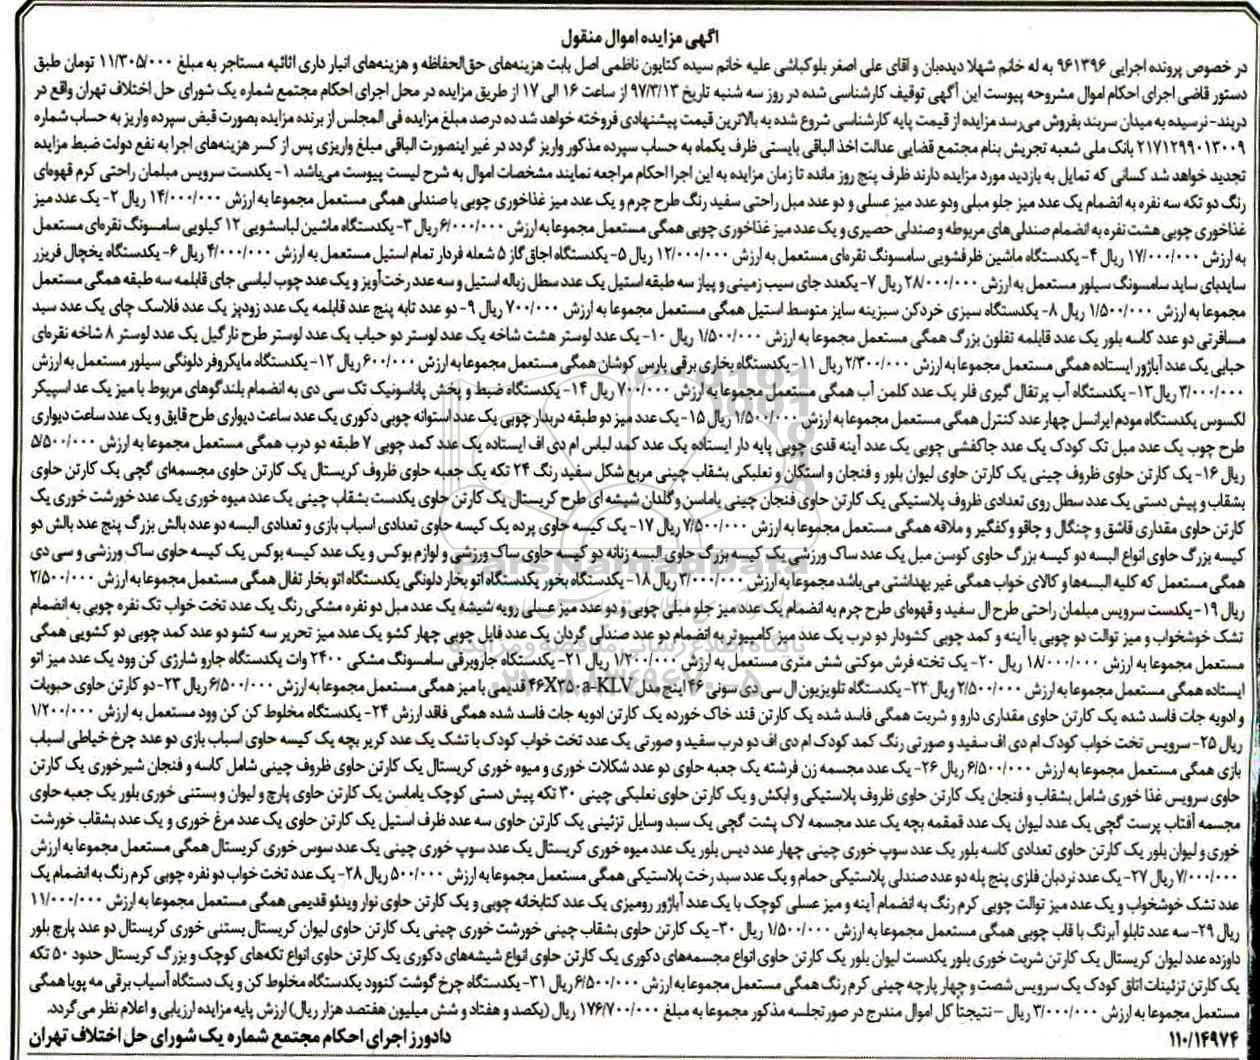 آگهی مزایده اموال منقول
در خصوص پرونده اجرایی ۹۶۱۳۹۶ به له خانم شهلا دیده‌بان و اقای علی اصغر بلوکباشی علیه خانم سیده کتایون ناظمی اصل بابت هزینه‌های حق‌الحفاظه و هزینه‌های انبار داری اثاثیه مستاجر به مبلغ ۱۱/۳۰۵/۰۰۰ تومان طبق
دستور قاضی اجرای احکام اموال مشروحه پیوست این آگهی توقیف کارشناسی شده در روز سه شنبه تاریخ ۹۷/۳/۱۳ از ساعت ۱۶ الی ۱۷ از طریق مزایده در محل اجرای احکام مجتمع شماره یک شورای حل اختلاف تهران واقع در
دربند- نرسیده به میدان سربند بفروش می‌رسد مزایده از قیمت پایه کارشناسی شروع شده به بالاترین قیمت پیشنهادی فروخته خواهد شد ده درصد مبلغ مزایده فی المجلس از برنده مزایده بصورت قبض سپرده واریز به حساب شماره
۲۱۷۱۲۹۹۰۱۳۰۰۹ بانک ملی شعبه تجریش بنام مجتمع قضایی عدالت اخذ الباقی بایستی ظرف یکماه به حساب سپرده مذکور واریز گردد در غیر اینصورت الباقی مبلغ واریزی پس از کسر هزینه‌های اجرا به نفع دولت ضبط مزایده
تجدید خواهد شد کسانی که تمایل به بازدید مورد مزایده دارند ظرف پنج روز مانده تا زمان مزایده به این اجرا احکام مراجعه نمایند مشخصات اموال به شرح لیست پیوست می‌باشد. ۱- یکدست سرویس مبلمان راحتی کرم قهوه‌ای
رنگ دو تکه سه نفره به انضمام یک عدد میز جلو مبلی ودو عدد میز عسلی و دو عدد مبل راحتی سفید رنگ طرح چرم و یک عدد میز غذاخوری چوبی با صندلی همگی مستعمل مجموعا به ارزش ۱۴/۰۰۰/۰۰۰ ریال ۲- یک عدد میز
غذاخوری چوبی هشت نفره به انضمام صندلی‌های مربوطه و صندلی حصیری و یک عدد میز غذاخوری چوبی همگی مستعمل مجموعا به ارزش ۶/۰۰۰/۰۰۰ ریال ۳- یکدستگاه ماشین لباسشویی ۱۲ کیلویی سامسونگ نقره‌ای مستعمل
به ارزش ۱۷/۰۰۰/۰۰۰ ریال ۴- یکدستگاه ماشین ظرفشویی سامسونگ نقره‌ای مستعمل به ارزش ۱۲/۰۰۰/۰۰۰ ریال ۵- یکدستگاه اجاق گاز ۵ شعله فردار تمام استیل مستعمل به ارزش ۴/۰۰۰/۰۰۰ ریال ۶- یکدستگاه یخچال فریزر
سایدبای ساید سامسونگ سیلور مستعمل به ارزش ۲۸/۰۰۰/۰۰۰ ریال ۷- یکعدد جای سیب زمینی و پیاز سه طبقه استیل یک عدد سطل زباله استیل و سه عدد رخت‌آویز و یک عدد چوب لباسی جای قابلمه سه طبقه همگی مستعمل
مجموعا به ارزش ۱/۵۰۰/۰۰۰ ریال ۸- یکدستگاه سبزی خردکن سبزینه سایز متوسط استیل همگی مستعمل مجموعا به ارزش ۷۰۰/۰۰۰ ریال ۹- دو عدد تابه پنج عدد قابلمه یک عدد زودپز یک عدد فلاسک چای یک عدد سبد
مسافرتی دو عدد کاسه بلور یک عدد قابلمه تفلون بزرگ همگی مستعمل مجموعا به ارزش ۱/۵۰۰/۰۰۰ ریال ۱۰- یک عدد لوستر هشت شاخه یک عدد لوستر دو حباب یک عدد لوستر طرح نارگیل یک عدد لوستر ۸ شاخه نقره‌ای
حبابی یک عدد آباژور ایستاده همگی مستعمل مجموعا به ارزش ۲/۳۰۰/۰۰۰ ریال ۱۱- یکدستگاه بخاری برقی پارس کوشان همگی مستعمل مجموعا به ارزش ۶۰۰/۰۰۰ ریال ۱۲- یکدستگاه مایکروفر دلونگی سیلور مستعمل به ارزش
۳/۰۰۰/۰۰۰ ریال ۱۳- یکدستگاه آب پرتقال گیری فلر یک عدد کلمن آب همگی مستعمل مجموعا به ارزش ۷۰۰/۰۰۰ ریال ۱۴- یکدستگاه ضبط و پخش پاناسونیک تک سی دی به انضمام بلندگوهای مربوط با میز یک عد اسپیکر
لکسوس یکدستگاه مودم ایرانسل چهار عدد کنترل همگی مستعمل مجموعا به ارزش ۱/۵۰۰/۰۰۰ ریال ۱۵- یک عدد میز دو طبقه دربدار چوبی یک عدد استوانه چوبی دکوری یک عدد ساعت دیواری طرح قایق و یک عدد ساعت دیواری
طرح چوب یک عدد مبل تک کودک یک عدد جاکفشی چوبی یک عدد آینه قدی چوبی پایه دار ایستاده یک عدد کمد لباس ام دی اف ایستاده یک عدد کمد چوبی ۷ طبقه دو درب همگی مستعمل مجموعا به ارزش ۵/۵۰۰/۰۰۰
ریال ۱۶- یک کارتن حاوی ظروف چینی یک کارتن حاوی لیوان بلور و فنجان و استکان و نعلبکی بشقاب چینی مربع شکل سفید رنگ ۲۴ تکه یک جعبه حاوی ظروف کریستال یک کارتن حاوی مجسمه‌ای گچی یک کارتن حاوی
بشقاب و پیش دستی یک عدد سطل روی تعدادی ظروف پلاستیکی یک کارتن حاوی فنجان چینی یاماسن و گلدان شیشه ای طرح کریستال یک کارتن حاوی یکدست بشقاب چینی یک عدد میوه خوری یک عدد خورشت خوری یک
کارتن حاوی مقداری قاشق و چنگال و چاقو و کفگیر و ملاقه همگی مستعمل مجموعا به ارزش ۷/۵۰۰/۰۰۰ ریال ۱۷- یک کیسه حاوی پرده یک کیسه حاوی تعدادی اسباب بازی و تعدادی البسه دو عدد بالش بزرگ پنج عدد بالش دو
کیسه بزرگ حاوی انواع البسه دو کیسه بزرگ حاوی کوسن مبل یک عدد ساک ورزشی یک کیسه بزرگ حاوی البسه زنانه دو کیسه حاوی ساک ورزشی و لوازم بوکس و یک عدد کیسه بوکس یک کیسه حاوی ساک ورزشی و سی دی
همگی مستعمل که کلیه البسه‌ها و کالای خواب همگی غیر بهداشتی می‌باشد مجموعا به ارزش ۳/۰۰۰/۰۰۰ ریال ۱۸- یکدستگاه بخور یکدستگاه اتو بخار دلونگی یکدستگاه اتو بخار تفال همگی مستعمل مجموعا به ارزش ۲/۵۰۰/۰۰۰
ریال ۱۹- یکدست سرویس مبلمان راحتی طرح ال سفید و قهوه‌ای طرح چرم به انضمام یک عدد میز جلو مبلی چوبی و دو عدد میز عسلی رویه شیشه یک عدد مبل دو نفره مشکی رنگ یک عدد تخت خواب تک نفره چوبی به انضمام
تشک خوشخواب و میز توالت دو چوبی با آینه و کمد چوبی کشودار دو درب یک عدد میز کامپیوتر به انضمام دو عدد صندلی گردان یک عدد فایل چوبی چهار کشو یک عدد میز تحریر سه کشو دو عدد کمد چوبی دو کشویی همگی
مستعمل مجموعا به ارزش ۱۸/۰۰۰/۰۰۰ ریال ۲۰- یک تخته فرش موکتی شش متری مستعمل به ارزش ۱/۲۰۰/۰۰۰ ریال ۲۱- یکدستگاه جاروبرقی سامسونگ مشکی ۲۴۰۰ وات یکدستگاه جارو شارژی کن وود یک عدد میز اتو
ایستاده همگی مستعمل مجموعا به ارزش ۲/۵۰۰/۰۰۰ ریال ۲۲- یکدستگاه تلویزیون ال سی دی سونی ۴۶ اینچ مدل ۴۶X۲۵۰a-KLV قدیمی با میز همگی مستعمل مجموعا به ارزش ۶/۵۰۰/۰۰۰ ریال ۲۳- دو کارتن حاوی حبوبات
و ادویه جات فاسد شده یک کارتن حاوی مقداری دارو و شربت همگی فاسد شده یک کارتن قند خاک خورده یک کارتن ادویه جات فاسد شده همگی فاقد ارزش ۲۴- یکدستگاه مخلوط کن کن وود مستعمل به ارزش ۱/۲۰۰/۰۰۰
ریال ۲۵- سرویس تخت خواب کودک ام دی اف سفید و صورتی رنگ کمد کودک ام دی اف دو درب سفید و صورتی یک عدد تخت خواب کودک با تشک یک عدد کریر بچه یک کیسه حاوی اسباب بازی دو عدد چرخ خیاطی اسباب
بازی همگی مستعمل مجموعا به ارزش ۶/۵۰۰/۰۰۰ ریال ۲۶- یک عدد مجسمه زن فرشته یک جعبه حاوی دو عدد شکلات خوری و میوه خوری کریستال یک کارتن حاوی ظروف چینی شامل کاسه و فنجان شیرخوری یک کارتن
حاوی سرویس غذا خوری شامل بشقاب و فنجان یک کارتن حاوی ظروف پلاستیکی و ابکش و یک کارتن حاوی نعلبکی چینی ۳۰ تکه پیش دستی کوچک یاماسن یک کارتن حاوی پارچ و لیوان و بستنی خوری بلور یک جعبه حاوی
مجسمه آفتاب پرست گچی یک عدد لیوان یک عدد قمقمه بچه یک عدد مجسمه لاک پشت گچی یک سبد وسایل تزئینی یک کارتن حاوی سه عدد ظرف استیل یک کارتن حاوی یک عدد مرغ خوری و یک عدد بشقاب خورشت
خوری و لیوان بلور یک کارتن حاوی تعدادی کاسه بلور یک عدد سوپ خوری چینی چهار عدد دیس بلور یک عدد میوه خوری کریستال یک عدد سوپ خوری چینی یک عدد سوس خوری کریستال همگی مستعمل مجموعا به ارزش
۷/۰۰۰/۰۰۰ ریال ۲۷- یک عدد نردبان فلزی پنج پله دو عدد صندلی پلاستیکی حمام و یک عدد سبد رخت پلاستیکی همگی مستعمل مجموعا به ارزش ۵۰۰/۰۰۰ ریال ۲۸- یک عدد تخت خواب دو نفره چوبی کرم رنگ به انضمام یک
عدد تشک خوشخواب و یک عدد میز توالت چوبی کرم رنگ به انضمام آینه و میز عسلی کوچک با یک عدد آباژور رومیزی یک عدد کتابخانه چوبی و یک کارتن حاوی نوار ویدئو قدیمی همگی مستعمل مجموعا به ارزش ۱۱/۰۰۰/۰۰۰
ریال ۲۹- سه عدد تابلو آبرنگ با قاب چوبی همگی مستعمل مجموعا به ارزش ۱/۵۰۰/۰۰۰ ریال ۳۰- یک کارتن حاوی بشقاب چینی خورشت خوری چینی یک کارتن حاوی لیوان کریستال بستنی خوری کریستال دو عدد پارچ بلور
داوزده عدد لیوان کریستال یک کارتن شربت خوری بلور یکدست لیوان بلور یک کارتن حاوی انواع مجسمه‌های دکوری یک کارتن حاوی انواع شیشه‌های دکوری یک کارتن حاوی انواع تکه‌های کوچک و بزرگ کریستال حدود ۵۰ تکه
یک کارتن تزئینات اتاق کودک یک سرویس شصت و چهار پارچه چینی کرم رنگ همگی مستعمل مجموعا به ارزش ۶/۵۰۰/۰۰۰ ریال ۳۱- یکدستگاه چرخ گوشت کنوود یکدستگاه مخلوط کن و یک دستگاه آسیاب برقی مه پویا همگی
مستعمل مجموعا به ارزش ۳/۰۰۰/۰۰۰ ریال – نتیجتا کل اموال مندرج در صورتجلسه مذکور مجموعا به مبلغ ۱۷۶/۷۰۰/۰۰۰ ریال (یکصد و هفتاد و شش میلیون هفتصد هزار ریال) ارزش پایه مزایده ارزیابی و اعلام نظر می گردد.
۱۱۰/۱۴۹۷۴ دادورز اجرای احکام مجتمع شماره یک شورای حل اختلاف تهران